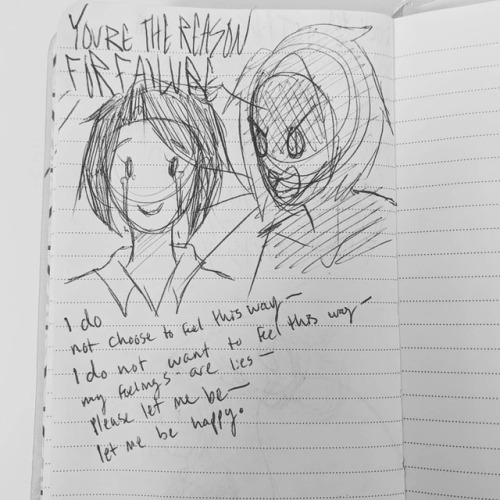 YOU'RE THE REASON
FOR FAILURE
I do
not choose to feel this way—
I do not want to feel this way—
my feelings are lies—
Please let me be—
let me be happy.